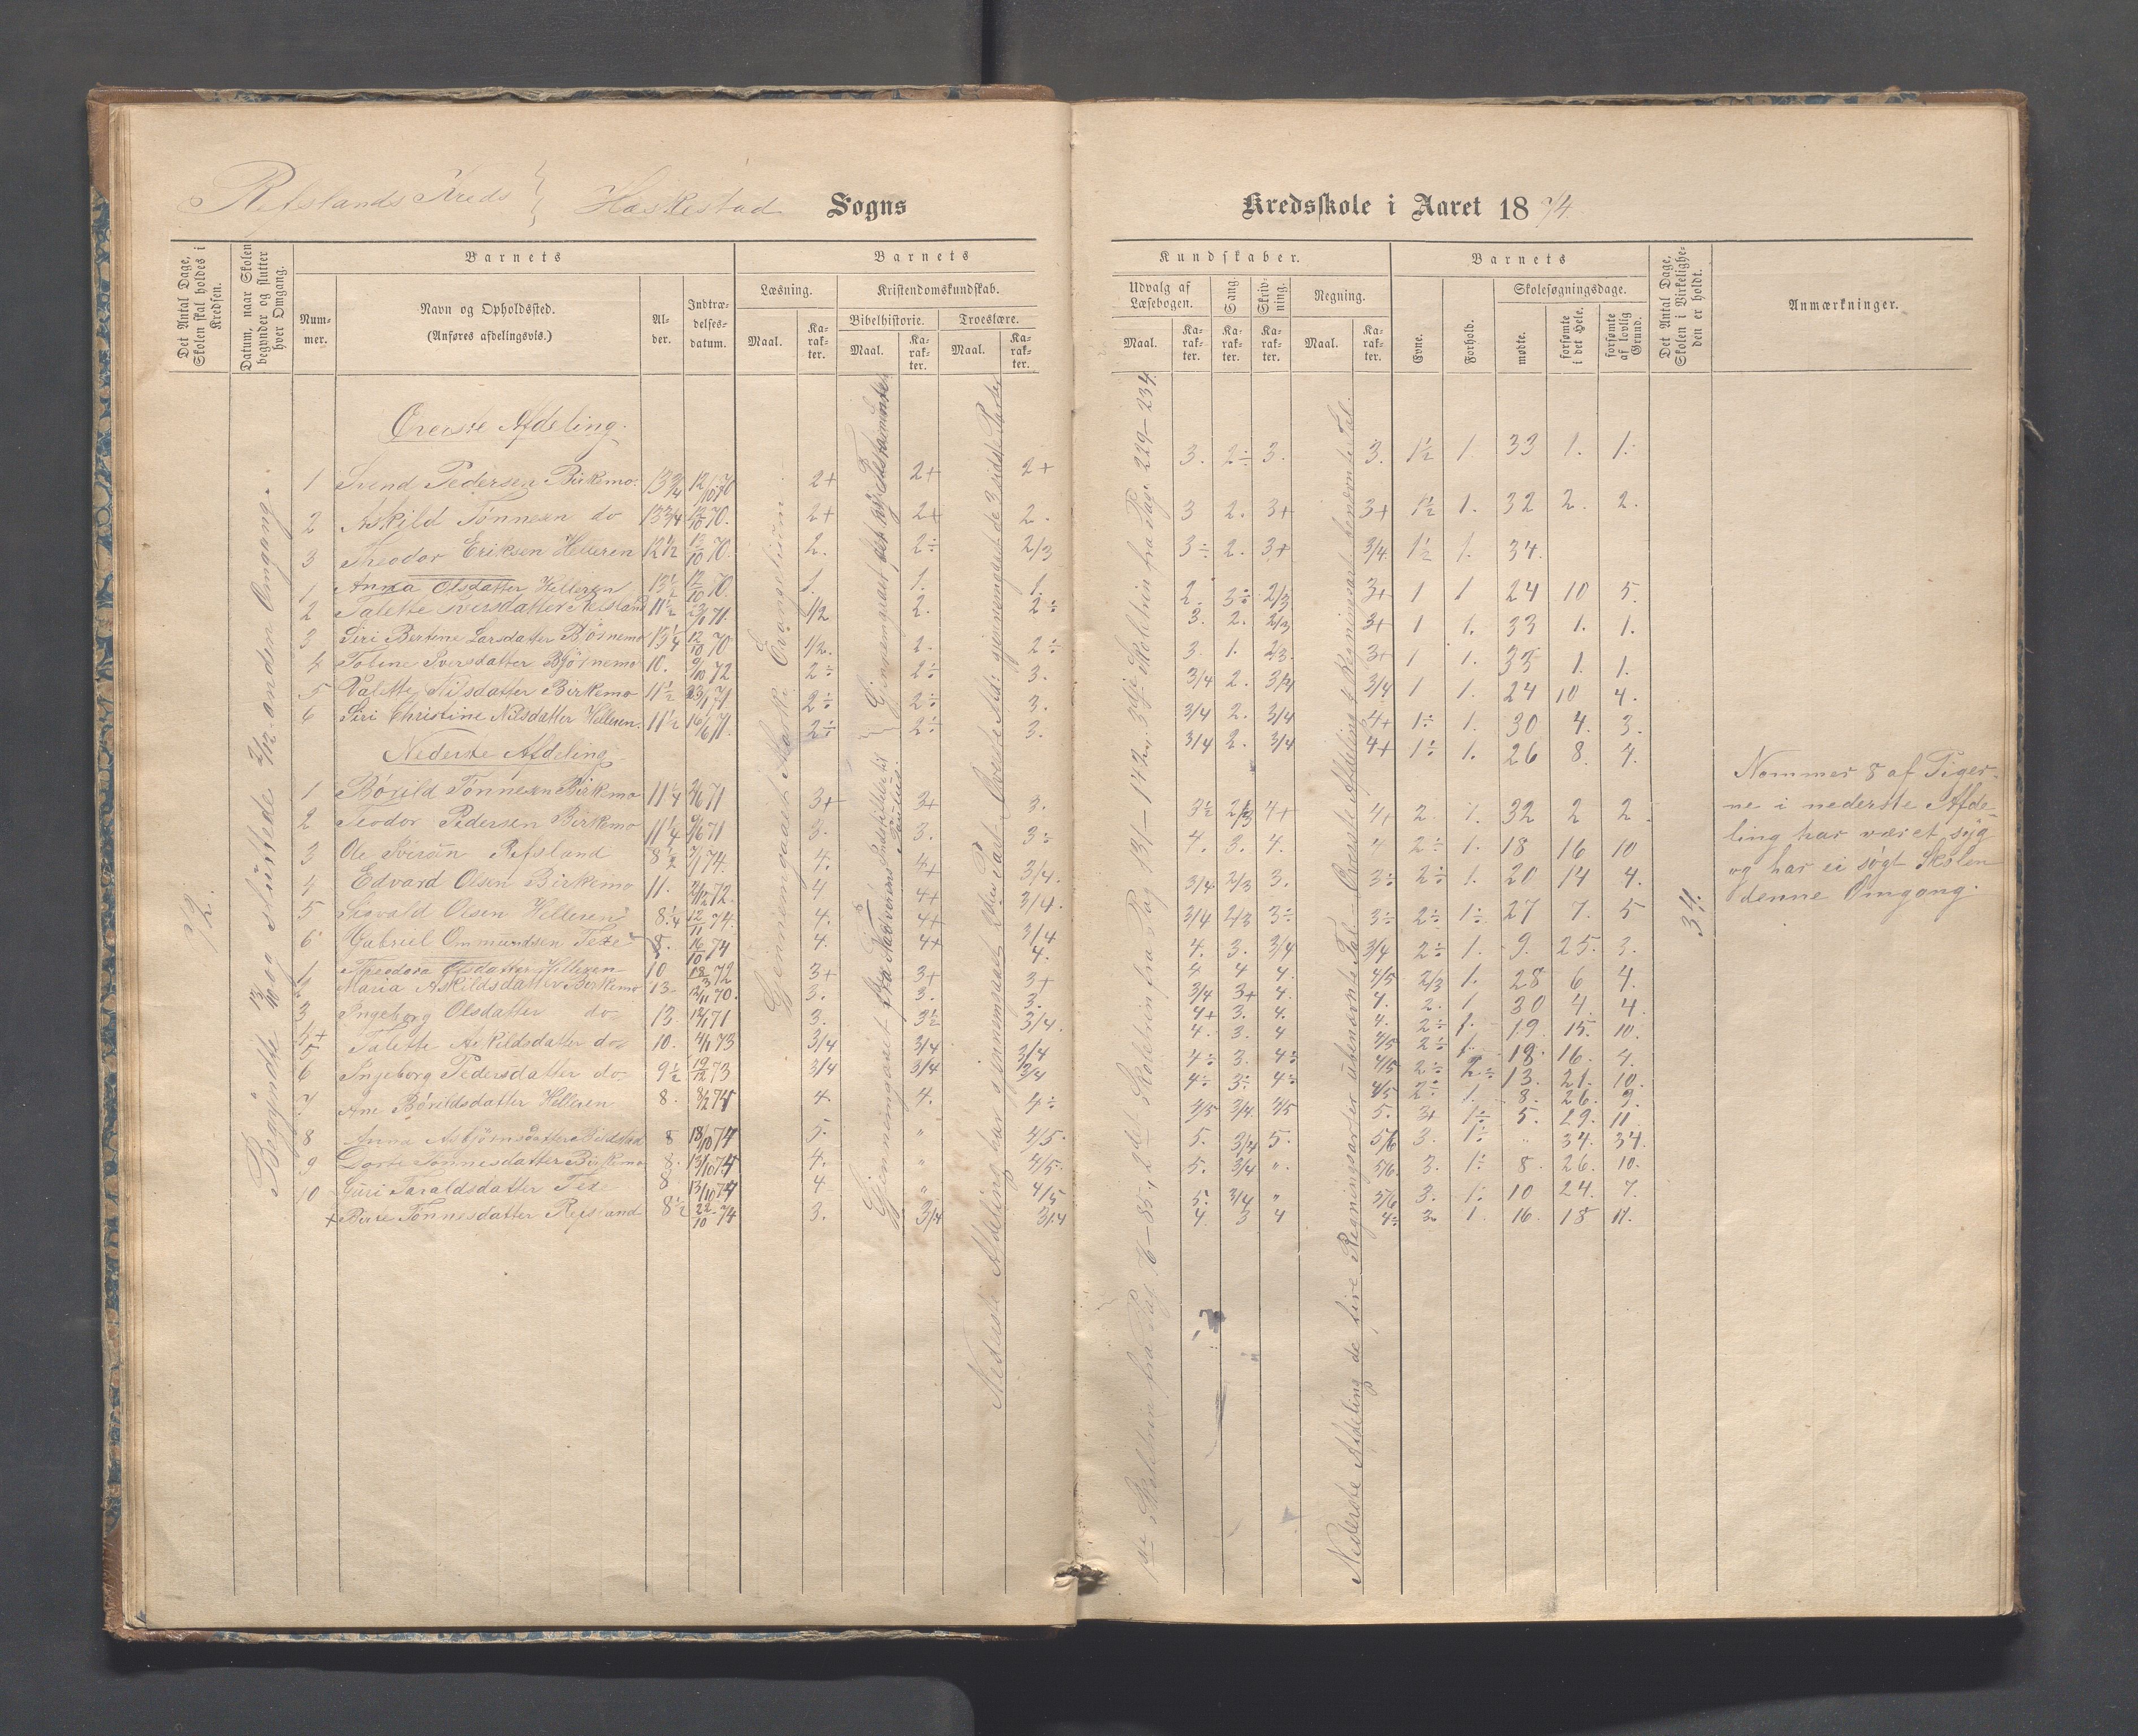 Refslands Kreds Heskestad Sogns Kredsskole i Aaret 1874.
Det Antal Dage, Skolen skal holdes i Kredsen.
Datum, naar Skolen begynder og slutter hver Omgang.
Barnets
Nummer.
Navn og Opholdssted.
(Anføres afdelingsvis.)
Alder.
Indtrædelsesdatum.
Barnets
Læsning.
Maal.
Karakter.
Kristendomskundskab.
Bibelhistorie.
Maal.
Karakter.
Troeslære.
Maal.
Karakter.
Kundskaber.
Udvalg af Læsebogen.
Maal.
Karakter.
Sang.
Karakter.
Skrivning.
Karakter.
Regning.
Maal.
Karakter.
Barnets
Evne.
Forhold.
Skolesøgningsdage.
mødte.
forsømte i det Hele.
forsømte af lovlig Grund.
Det Antal Dage, Skolen i Virkeligheden er holdt.
Anmærkninger.
Begyndte 13/10 og sluttede 2/12 anden Omgang.
Øverste Afdeling.
1 Svend Pedersen Birkemo. 13 3/4 12/10 70 2+ 2+ 2+ 3. 2÷ 3. 3. 1½ 1. 33 1. 1.
2 Askild Tønnesen do 13 3/4 12/10 70. 2+ 2+ 2. 3 2. 3+ 3+ 1½ 1. 32 2. 2.
3 Theodor Eriksen Helleren 12½ 13/10 70. 2. 2÷ 2/3 3÷ 2. 3+ 3/4 1½ 1. 34.
1 Anna Olsdatter Helleren 13½ 12/10 70. 1. 1. 1. 2. 3÷ 2/3 3+ 1 1 24 10 5.
2 Talette Iversdatter Refsland 11½ 23/1 71. 1/2 2. 2÷ 3. 2. 2/3 3+ 1 1. 33 1. 1.
3 Siri Bertine Larsdatter Bjørnemo 13¼ 12/10 70 1/2. 2. 2÷ 3. 1. 2/3. 3+ 1 1. 33 1. 1.
4 Tobine Iversdatter Bjørnemo 10. 9/10 72 2÷ 2÷ 3. 3/4 2. 3/4 3/4 1 1. 24 10 4.
5 Valette Nilsdatter Birkemo 11½ 23/1 71 2÷ 2÷ 3. 3/4 2. 3/4 4+ 1÷ 1. 30 4. 3.
6 Siri Christine Nilsdatter Helleren. 11½ 16/6 71. 2÷ 2÷ 3. 3/4 2. 3/4 4+ 1÷ 1. 26 8. 4.
Nederste Afdeling
1 Børild Tønnesen Birkemo 11¼ 2/6 71 3+ 3+ 3. 3½ 2/3 4+ 4+ 2. 1. 32 2 2.
2 Teodor Pedersen Birkemo 11¼ 9/6 71 3. 3. 3÷ 4. 3. 4. 4 2÷ 1. 18 16 10
3 Ole Iversen Refsland 8½ 7/1 74. 4. 4+ 3/4. 3/4 2/3 3. 3÷ 2÷ 1. 20 14 4.
4 Edvard Olsen Birkemo 11. 2/12 72. 4 4+ 3/4. 3/4 2/3 3÷ 3÷ 2÷ 1÷ 27 7. 5
5 Sigvald Olsen Helleren 8¼ 12/11 74. 4. 4+ 3/4 4. 3. 3/4 3/4 2÷ 1. 9. 25. 3.
6 Gabriel Ommundsen 8. 16/10 74 4. 4+ 4. 4 4 4. 4/5 2/3 1. 28 6 4.
1 Theodora Olsdatter Helleren 10 18/3 72 3+ 3+ 3+ 3/4 3+ 4. 4. 2. 1 30 4. 4
Maria Askildsdatter Birkemo 13. 12/11 70. 3. 3. 3. 4+ 3. 4. 4. 2÷ 1. 19 15. 10.
3 Ingeborg Olsdatter do 13. 3. 3½ 3/4. 4. 3. 4 4/5 2÷ 1. 18 16. 4.
Talette Askildsdatter do. 10. 4/1 73 3/4 3/4 3/4 4÷ 3. 4÷ 4/5 2÷ 2÷ 13. 21. 10.
6 Ingeborg Pedersdatter do. 9½ 19/12 73 3/4 3/4 3/4 4÷ 3÷ 4÷ 4/5 2÷ 1. 8. 26. 9.
7 Ane Børildsdatter Helleren 8. 4. 4. 4÷ 4/5 3/4 4/5 5. 3+ 1÷ 5. 29. 11
8 Anna Asbjørnsdatter 8 18/10 74 5. " 4/5. 5. 3/4 5. 5/6 3. 1÷ " 34. 34.
9 Dorte Tønnesdatter Birkemo 8. 13/10 74 4. " 4/5. 5. 3/4 " 5/6. 3. 1÷ 8. 26. 10.
10 Guri Taraldsdatter 8 13/10 74 4. " 4/5 5. 3/4 " 5/6 3. 1÷ 10 24. 7.
+ Birte Tønnesdatter Refsland 8½ 22/10 74 3. 3/4 3/4 4. 3 4 4÷ 3. 1. 16. 18 11.
Gjennemgaaet Marki Evangelium.
Gjennemgaaet det nye Testamente
Gjennemgaaet fra Nadverens Indstiftelse til Paulus.
Øverste Afd: gjennemgaaet de 3 sidste Parter
Nederste Afdeling har gjennemgaaet 2den Part
1ste Skoletrin fra Pag. 76-85, 2det Skoletrin fra Pag 131-142 og 3dje Skoletrin fra Pag. 229-234.
Nederste Afdeling de fire Regningsarter ubenævnte Tal - Øverste Afdeling 4 Regningsart benævnte Tal.
34.
Nommer 8 af Piger-
ne i nederste Afde-
ling har været syg
og har ei søgt Skolen
denne Omgang.